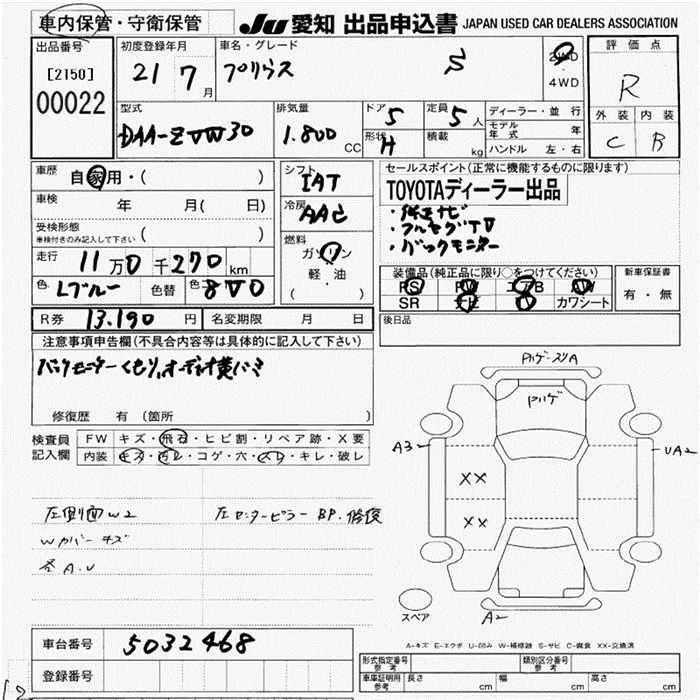 車内保管・守衛保管
JU 愛知 出品申込書 JAPAN USED CAR DEALERS ASSOCIATION
出品番号
[2150]
00022
初度登録年月
21 7 月
車名・グレード
プリウス S
2WD
・
4WD
評価点
R
外装 内装
C B
型式
DAA-ZVW30
排気量
1.800 CC
ドア 5
形状 H
定員 5 人
積載 kg
ディーラー・並行
モデル年式 年
ハンドル 左・右
車歴
自家用・( )
車検 年 月( 日)
受検形態
車検付きのみ記入して下さい ( )
走行 11万0千270km
色 Lブルー 色替 色 8V0
シフト IAT
冷房 AAC
燃料
ガソリン
軽・油
( )
セールスポイント(正常に機能するものに限ります)
TOYOTAディーラー出品
・純正ナビ
・フルセグTV
・バックモニター
装備品(純正品に限り○をつけてください)
PS PW エアB AW
SR ナビ TV カワシート
新車保証書
有・無
後日品
R券 13.190 円 名変期限 月 日
注意事項申告欄(不具合内容等は具体的に記入して下さい)
バックモニターくもり,オーディオ
修復歴 有 (箇所 )
検査員記入欄
FW キズ・飛石・ヒビ割・リペア跡・X要
内装 キズ・汚レ・コゲ・穴・スレ・キレ・破レ
左側面W2
左センターピラー BP.修復
Wカバーキズ
各A.U
A
A3
UA2
XX
XX
スペア
A2
A-キズ E-エクボ U-凹み W-補修跡 S-サビ C-腐食 XX-交換済
車台番号 5032468
登録番号
形式指定番号 参考
類別区分番号 参考
車庫証明用 参考 長さ cm 幅 cm 高さ cm